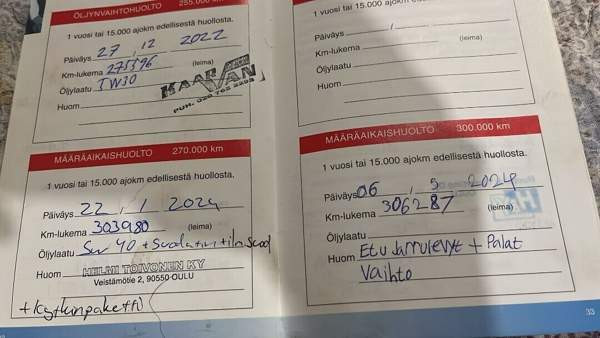 ÖLJYNVAIHTOHUOLTO 255.000 km
1 vuosi tai 15.000 ajokm edellisestä huollosta.
Päiväys 27 . 12 2022
Km-lukema 275596 (leima)
Öljylaatu 5W30
KAAR
VAN
Huom
MÄÄRÄAIKAISHUOLTO 270.000 km
1 vuosi tai 15.000 ajokm edellisestä huollosta.
Päiväys 22 . 1 2024
Km-lukema 303980 (leima)
Öljylaatu 5w 40 + Suodatin + ilm suod
Huom HELMI TOIVONEN KY
Veistämötie 2, 90550 OULU
+ kytkinpaketti
1 vuosi tai 15.000 ajokm edellisestä huollosta.
Päiväys
Km-lukema (leima)
Öljylaatu
Huom
MÄÄRÄAIKAISHUOLTO 300.000 km
1 vuosi tai 15.000 ajokm edellisestä huollosta.
Päiväys 06 . 5 2024
Km-lukema 306287 (leima)
Öljylaatu
Huom Etu Jarrulevyt + Palat
Vaihto
33